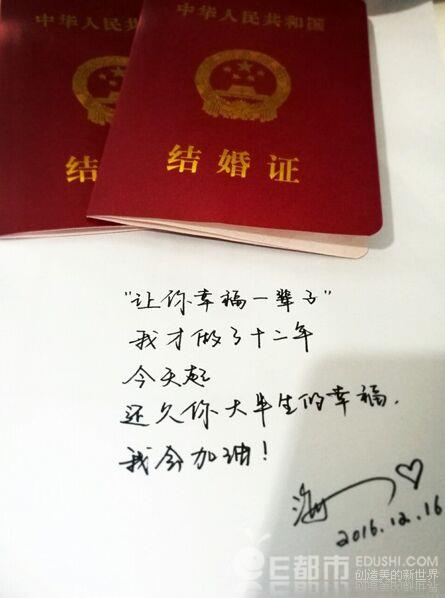 中华人民共
中华人民共和国
结
结婚证
"让你幸福一辈子"
我才做了十二年
今天起
还欠你大半生的幸福.
我会加油!
2016.12.16
E都市 EDUSHI.COM
创造美的新世界